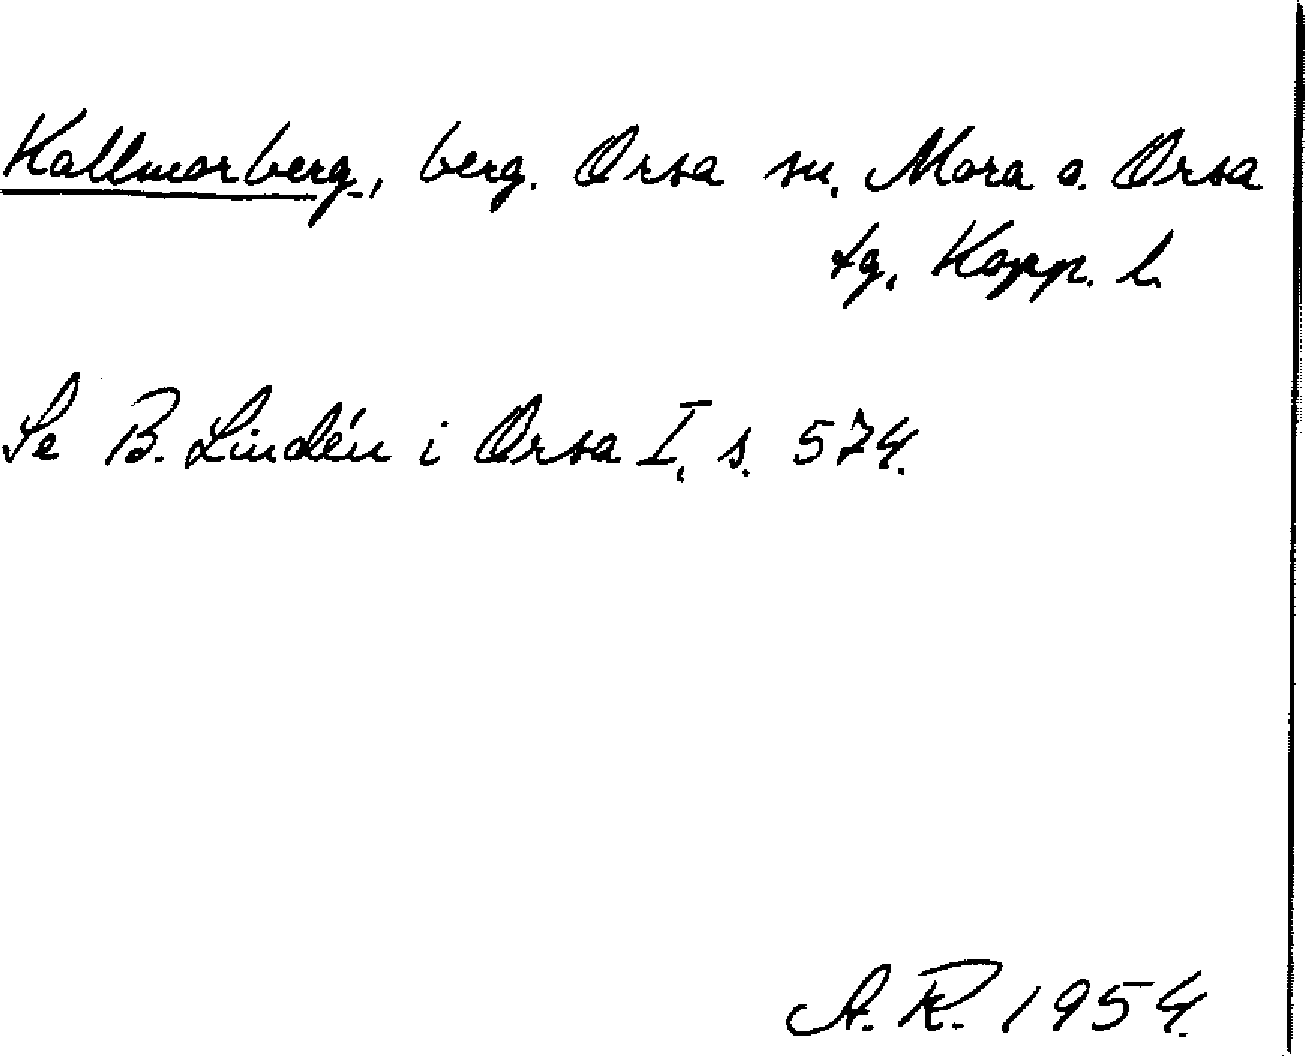 Kallmorberg, berg. Orsa sn, Mora o. Orsa
tg, Kopp. l.
Se B. Lindén i Orsa I, s. 574.
A. R. 1954.